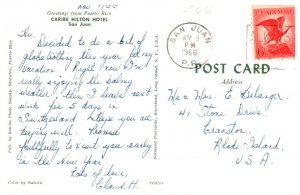 Nov 1966
Greetings from Puerto Rico
CARIBE HILTON HOTEL
San Juan
Hi,
Decided to do a bit of
globetrotting this year for my
vacation. Right now I'm
really enjoying the balmy
weather then I leave next
week for 5 days in
Switzerland. Hope you are
keeping well. Promise
faithfully to visit you early
in the new year
Lots of love,
Color by Dukane
SAN JUAN
NOV
PM
1966
P.R.
U.S. AIR MAIL
POST CARD
Address
Mr & Mrs. E Belanger
41 Stone Drive
Cranston
Rhode Island
U.S.A.